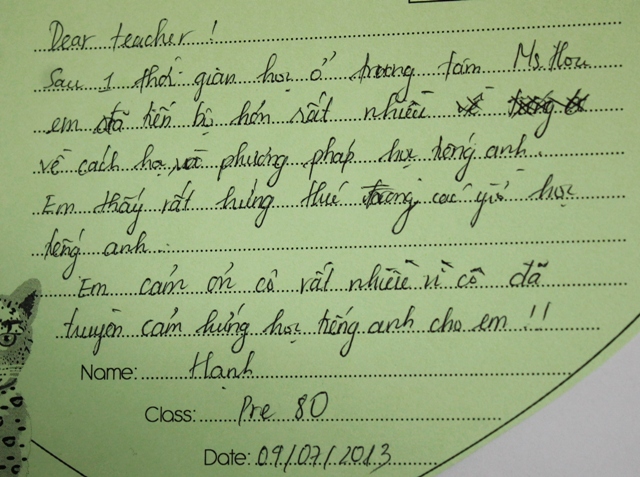 Dear teacher !
Sau 1 thời gian học ở trung tâm Ms. Hoa
em đã tiến bộ hơn rất nhiều
về cách học và phương pháp học tiếng anh.
Em thấy rất hứng thú trong các giờ học
tiếng anh.
Em cảm ơn cô rất nhiều vì cô đã
truyền cảm hứng học tiếng anh cho em !!
Name: Hạnh
Class: Pre 80
Date: 09/07/2013